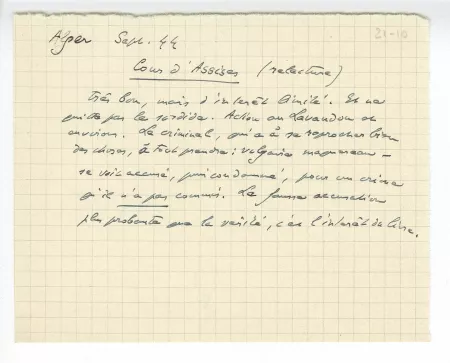 Alger Sept. 44
21-10
Cour d'Assises (relecture)
Très bon, mais d'intérêt limité. Et ne
quitte pas le sordide. Action au Lavandou et
environs. Le criminel, qui a à se reprocher bien
des choses, à tout prendre : vulgaire maquereau –
se voit accusé, puis condamné, pour un crime
qu'il n'a pas commis. La fausse accusation
plus probante que la vérité, c'est l'intérêt du livre.